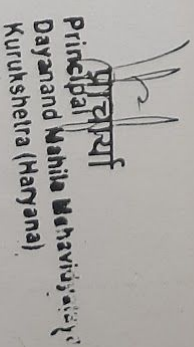 प्राचार्या
Principal
Dayanand Mahila Mahavidyalay
Kurukshetra (Haryana)